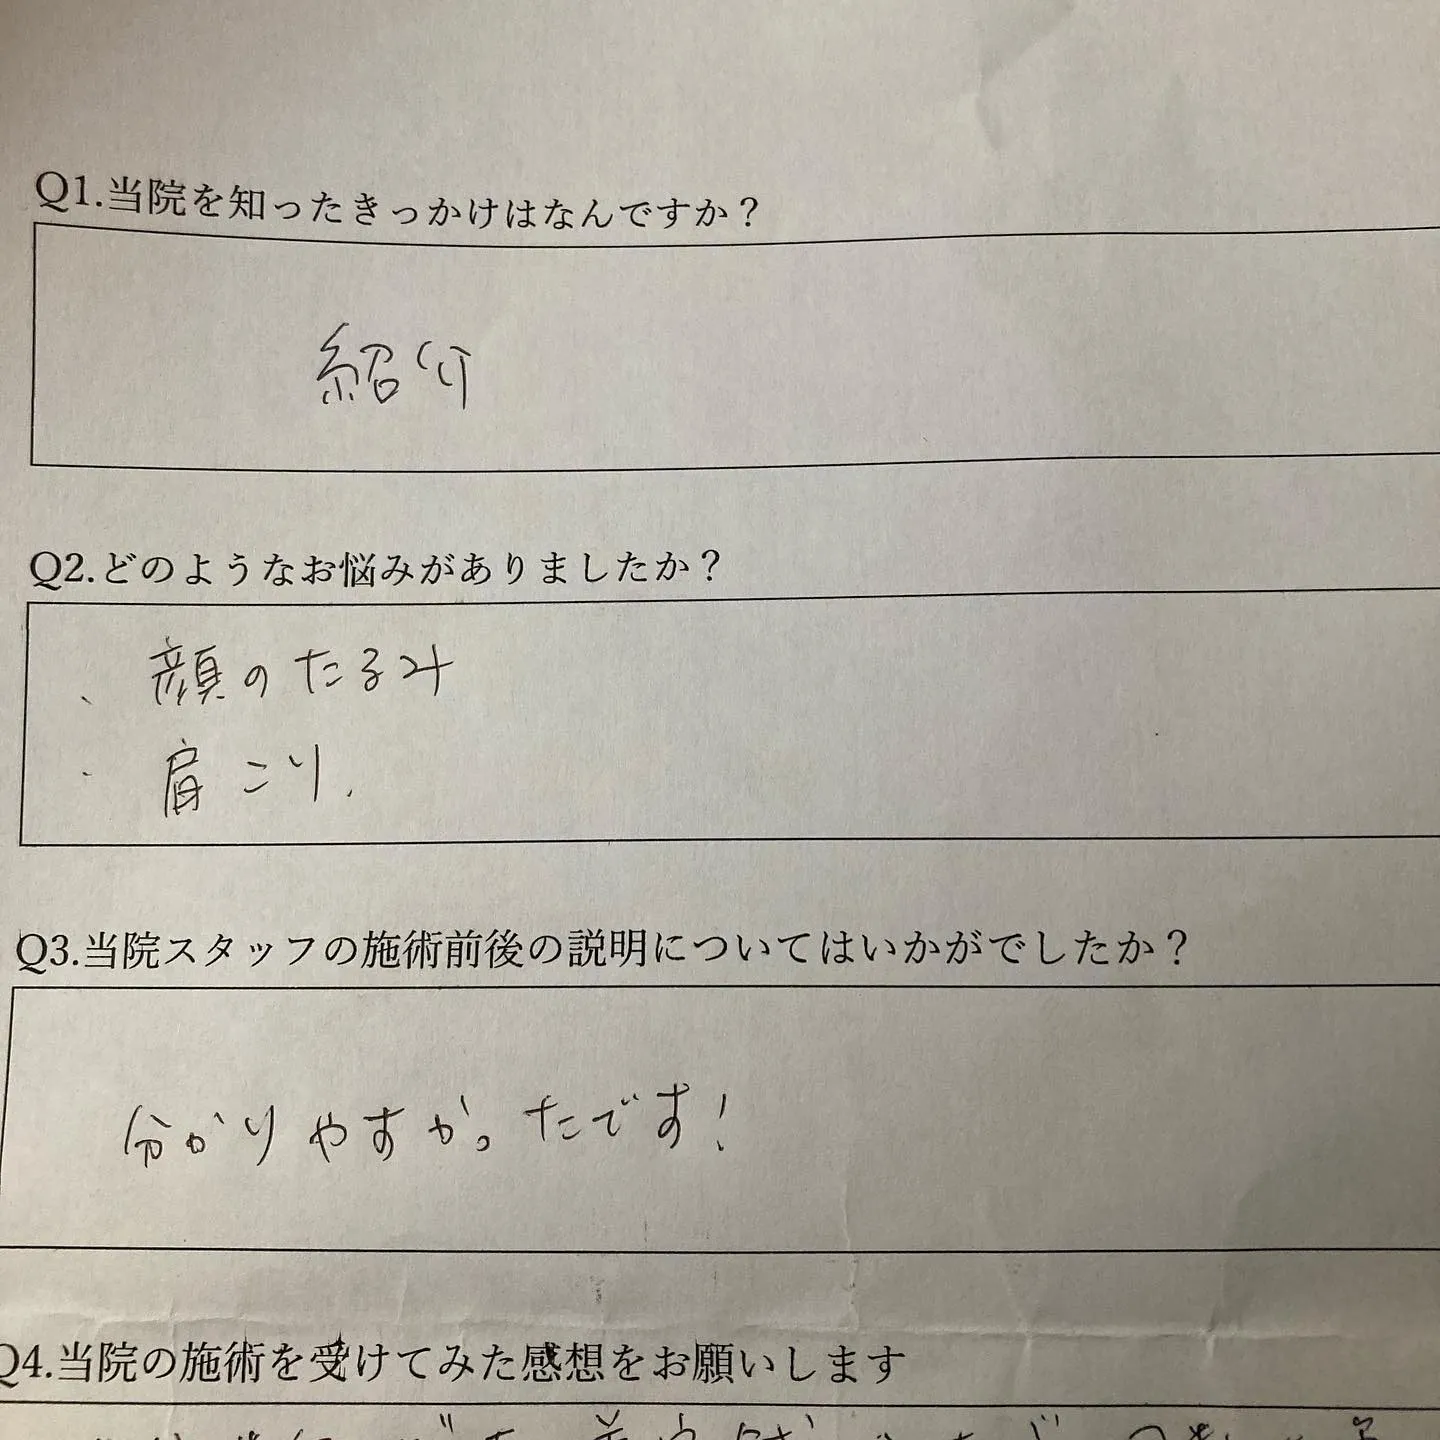 Q1.当院を知ったきっかけはなんですか？
紹介
Q2.どのようなお悩みがありましたか？
、顔のたるみ
・肩こり.
Q3.当院スタッフの施術前後の説明についてはいかがでしたか？
分かりやすかったです！
Q4.当院の施術を受けてみた感想をお願いします